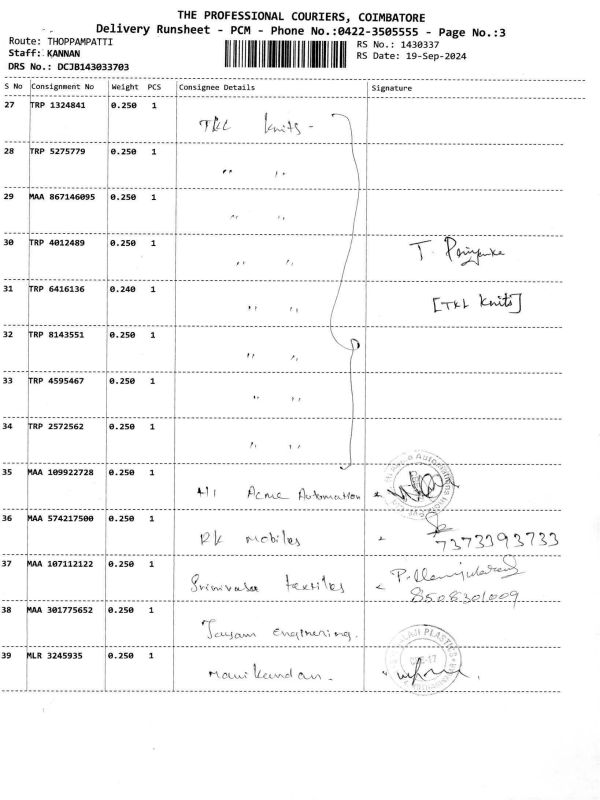 THE PROFESSIONAL COURIERS, COIMBATORE
Delivery Runsheet - PCM - Phone No.:0422-3505555 - Page No.:3
Route: THOPPAMPATTI
RS No.: 1430337
Staff: KANNAN
RS Date: 19-Sep-2024
DRS No.: DCJB143033703
S No Consignment No Weight PCS Consignee Details Signature
27 TRP 1324841 0.250 1
TKL Knits -
28 TRP 5275779 0.250 1
" "
29 MAA 867146095 0.250 1
" "
30 TRP 4012489 0.250 1
" " T. Priyanka
31 TRP 6416136 0.240 1
" " [TKL Knits]
32 TRP 8143551 0.250 1
" "
33 TRP 4595467 0.250 1
" "
34 TRP 2572562 0.250 1
" "
35 MAA 109922728 0.250 1
Acme Automation
36 MAA 574217500 0.250 1
RK Mobiles 7373393733
37 MAA 107112122 0.250 1
Srinivasa textiles 8508301009
38 MAA 301775652 0.250 1
Jayam enginering.
39 MLR 3245935 0.250 1
PLASTICS
Manikandan.